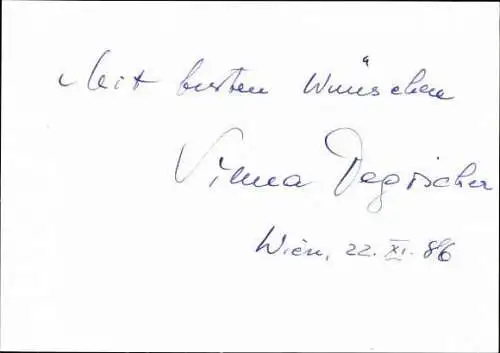 Mit besten Wünschen
Vilma Degischer
Wien, 22. XI. 86